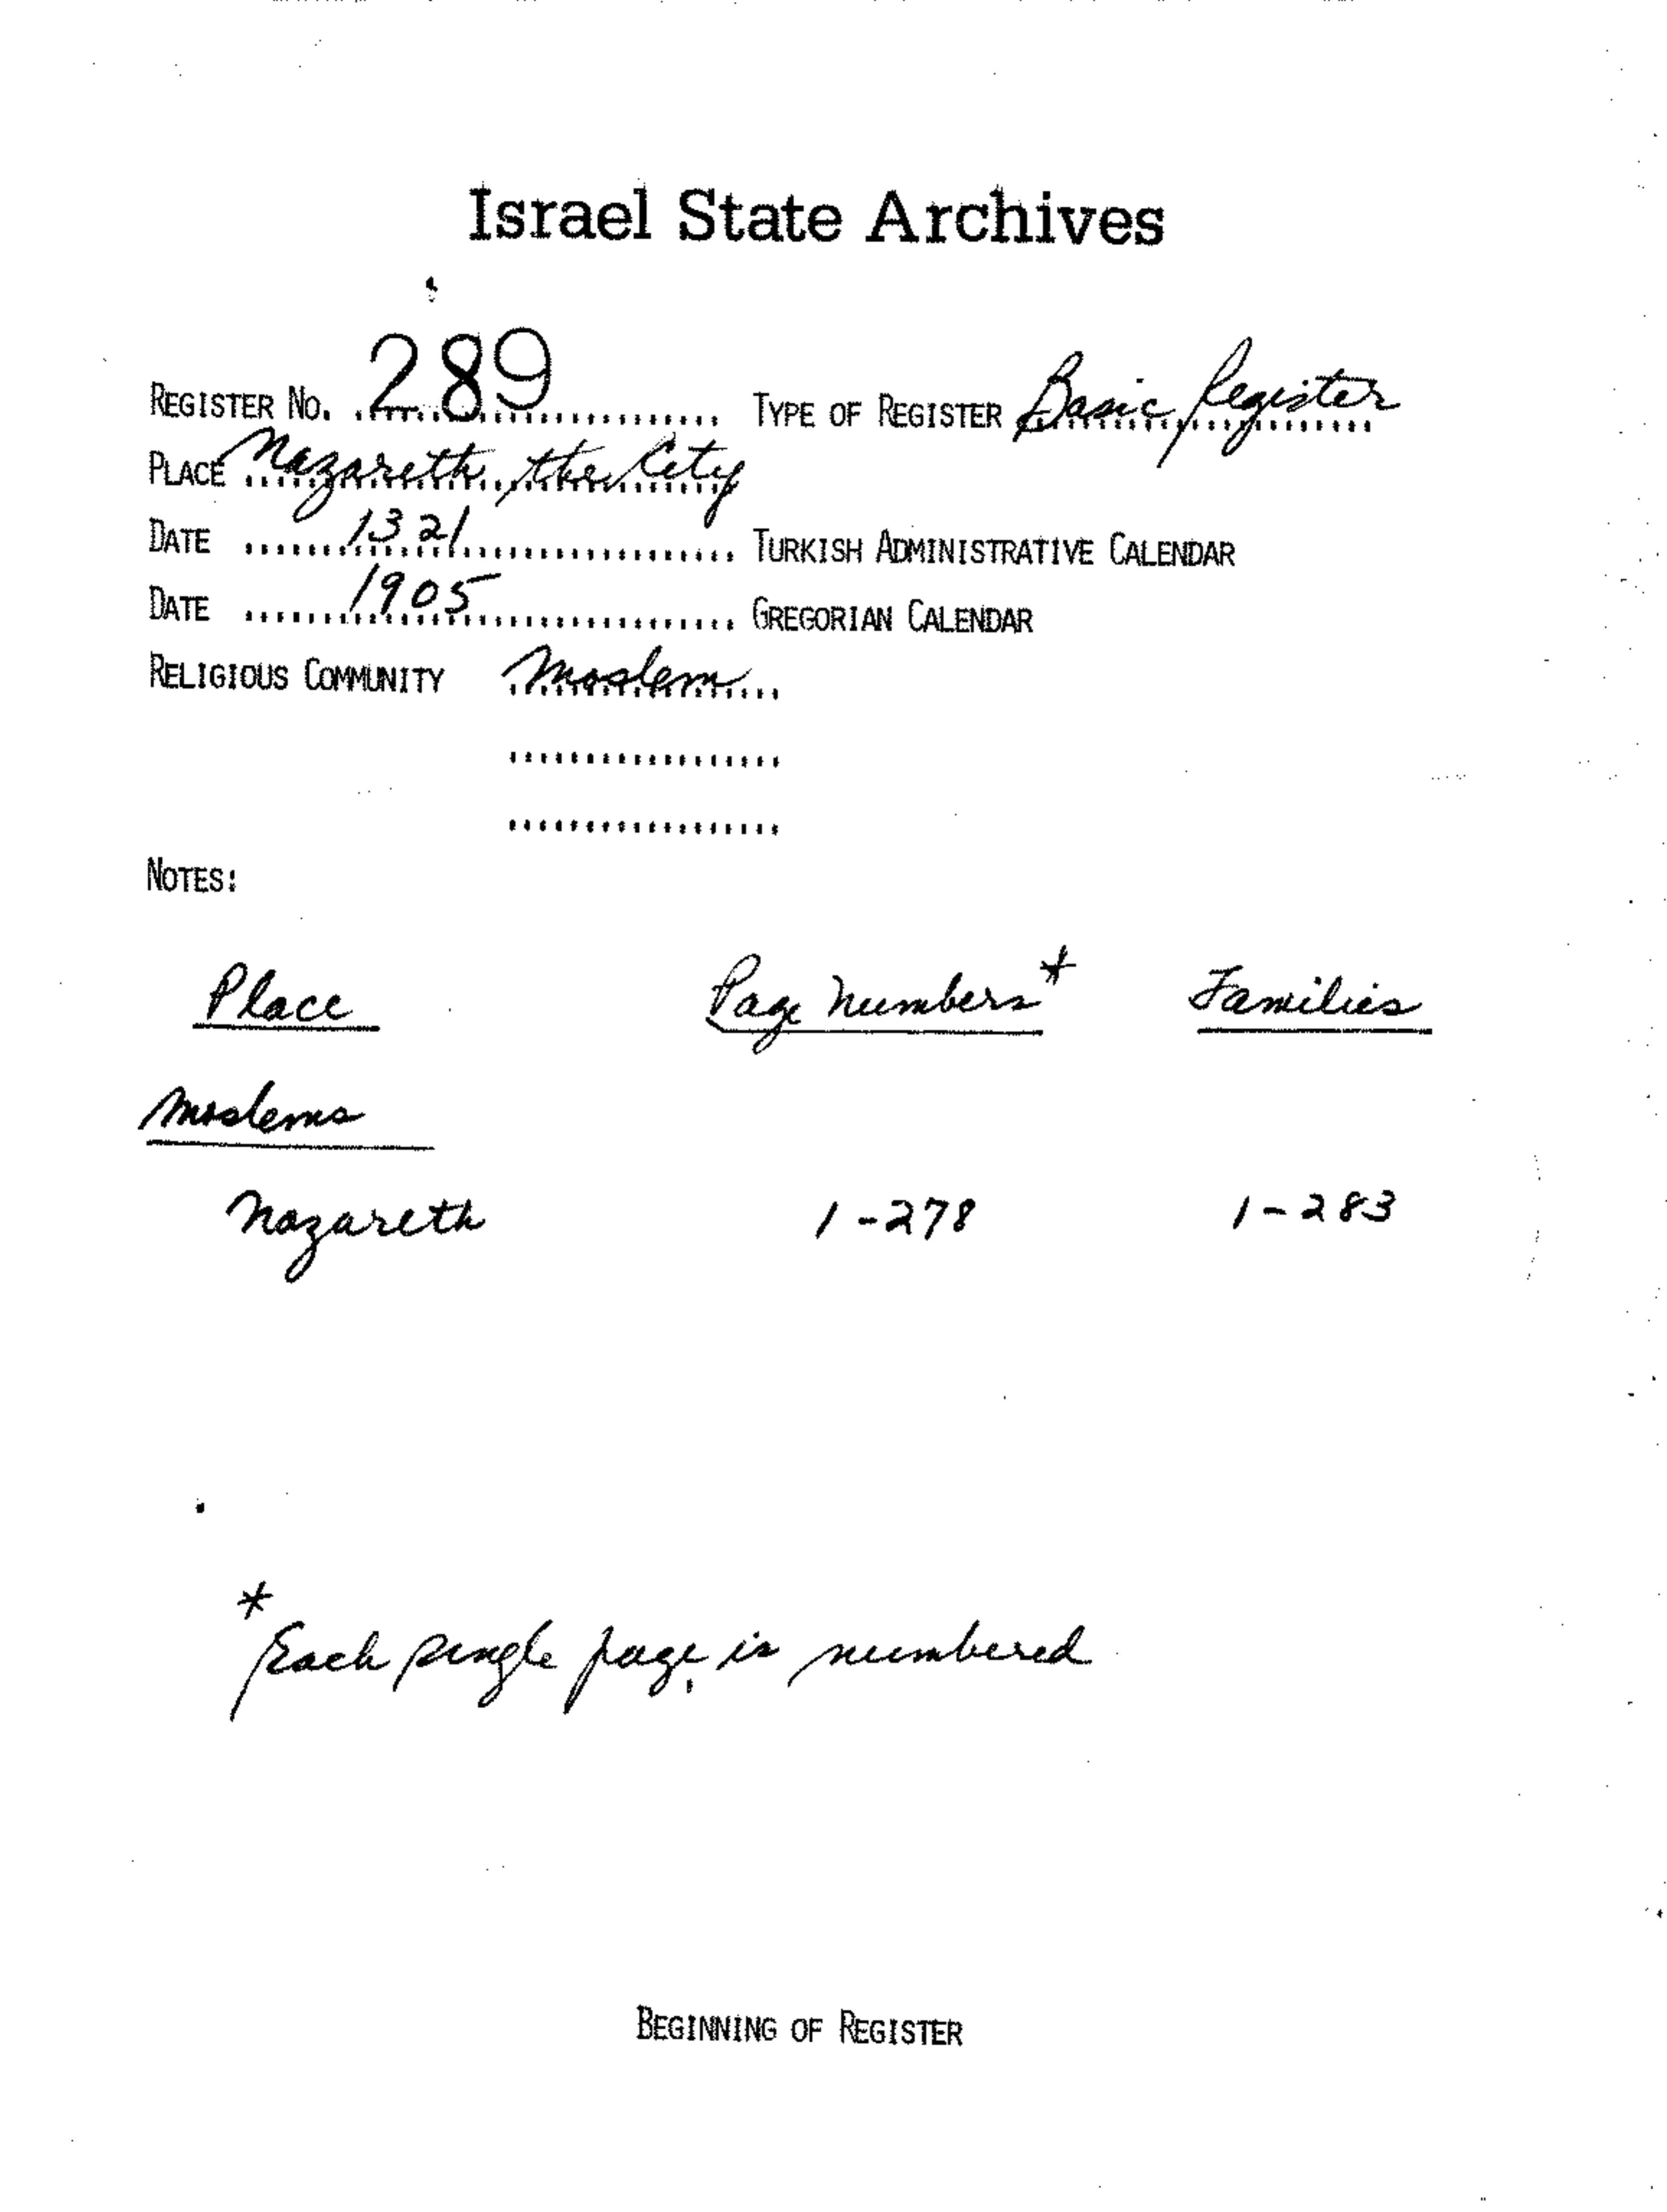 Israel State Archives
REGISTER NO. 289 TYPE OF REGISTER Basic Register
PLACE Nazareth, the City
DATE 1321 TURKISH ADMINISTRATIVE CALENDAR
DATE 1905 GREGORIAN CALENDAR
RELIGIOUS COMMUNITY Moslem
NOTES:
Place Page Numbers* Families
Moslems
Nazareth 1-278 1-283
* Each single page is numbered
BEGINNING OF REGISTER